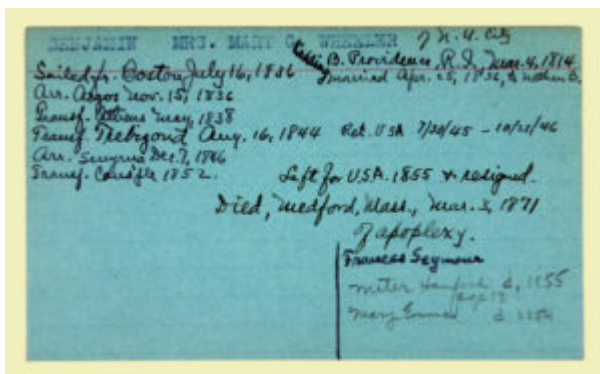 BENJAMIN MRS. MARY G. WHEELER of N.Y. City
B. Providence, R.I., Mar. 4, 1814
Sailed fr. Boston, July 16, 1836 married Apr. 25, 1836, to Nathan B.
Arr. Argos Nov. 15, 1836
Transf. Athens May, 1838
Transf. Trebizond Aug. 16, 1844 Ret. USA 7/30/45 - 10/21/46
Arr. Smyrna Dec. 7, 1846
Transf. Cons'ple 1852.
Left for USA. 1855 & resigned.
Died, Medford, Mass., Mar. 3, 1871
of apoplexy.
Frances Seymour
d. 1855
Mary Emma d. 1854